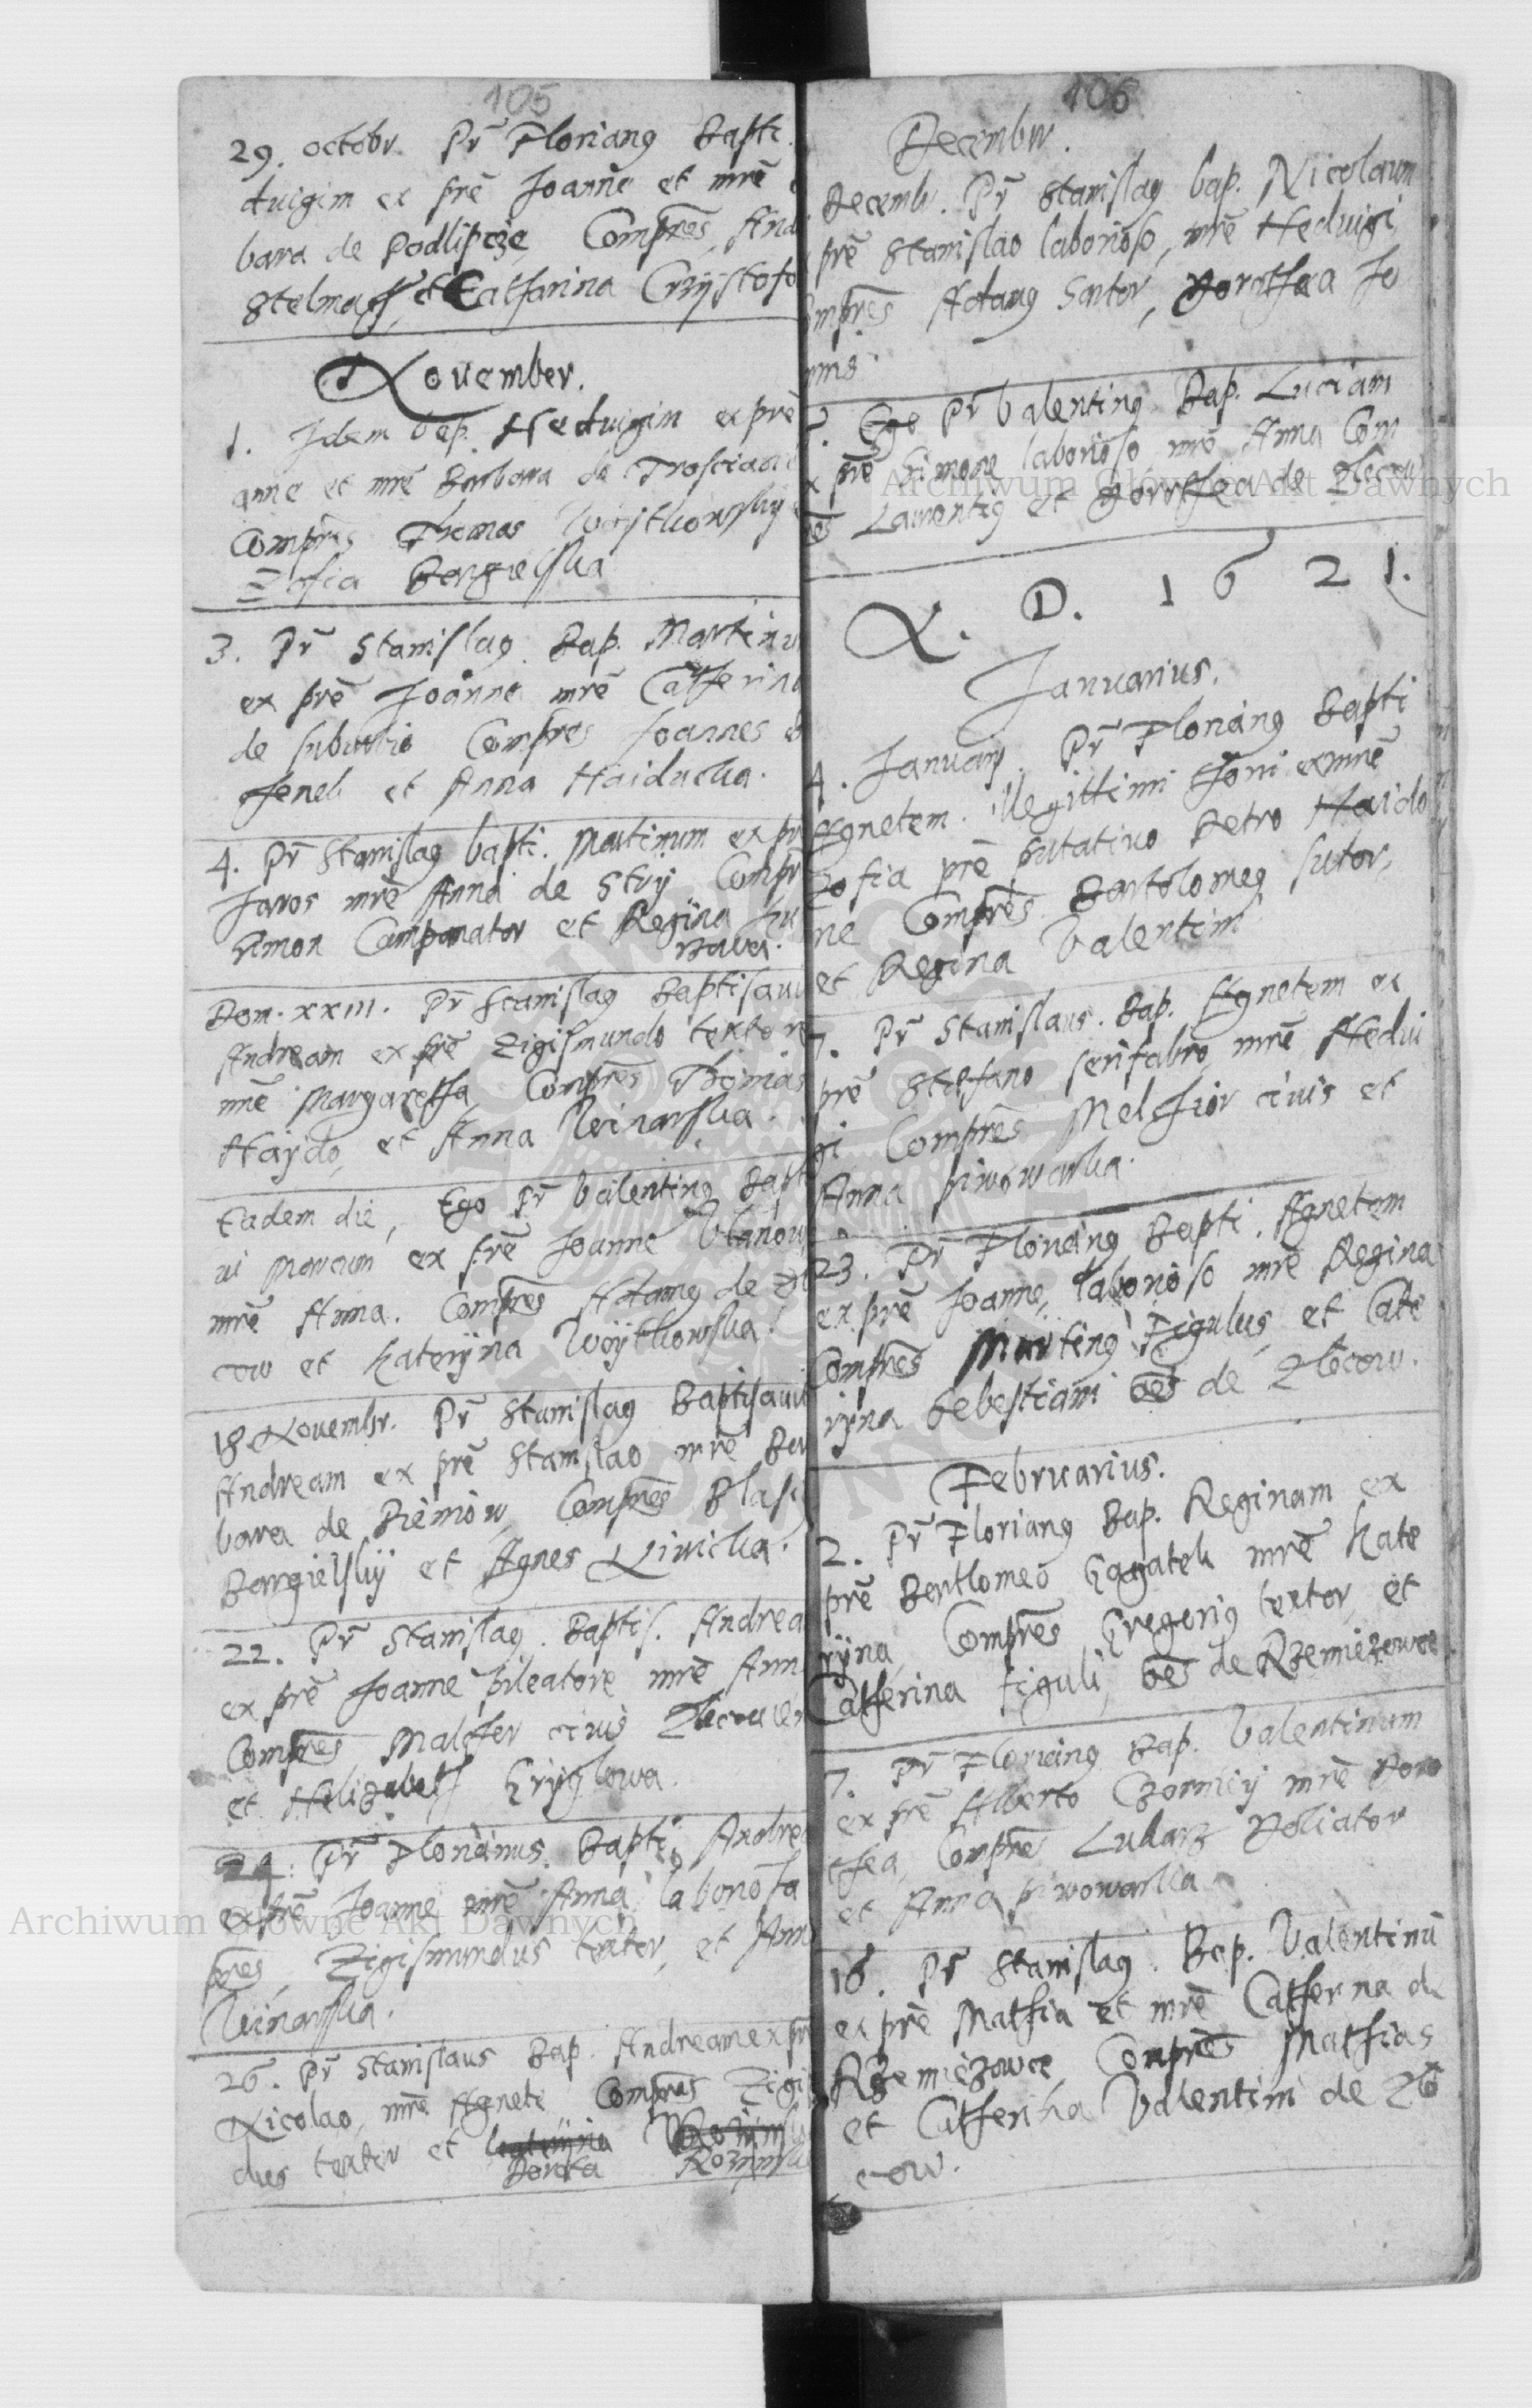 105
29. octobr. Pr Florianꝰ Bapti.
duigim ex prē Joanne et mrē
bara de Podlipcze Compres, And
Stelmach, et Catharina Crzystofo
November.
1. Idem bap. Heduigim ex prē
anne et mrē Barbara de Trosciane
Compres Thomas Woytkowskÿ
Zofia Bargielska
3. Pr Stanislaꝰ Bap. Martinu
ex prē Joanne mrē Catherina
de suburbio Compres Joannes
et Anna Haiduczka.
4. Pr Stanislaꝰ bapti. Martinum ex pr
Jaros mrē Anna de Strÿ Compr
Simon Campanator et Regina
Dom. XXIII. Pr Stanislaꝰ Baptisaui
Andream ex prē Zigismundo textore
mrē Margaretha, Comprēs Thomas
Haÿdo, et Anna Winarska.
Eadem die, Ego Pr Valentinꝰ Bapt
ui Marcum ex prē Joanne
mrē Anna. Compres Adamꝰ de Zlo
cow et Katerÿna Woÿtkowska.
18 Novembr. Pr Stanislaꝰ Baptisaui
Andream ex prē Stanislao mrē Bar
bara de Compres Blasiꝰ
Bargielskÿ et Agnes Liwicka.
22. Pr Stanislaꝰ. Baptis. Andrea
ex prē Joanne pileatore mrē Ann
Compres Malcher ciuis Zlocouien
et Helizabeth Grÿglowa.
24. Pr Florianus. Bapti. Andrea
ex prē Joanne mrē Anna laboriosa
pres, Zigismundus textor, et Ann
Winarska.
26. Pr Stanislaus Bap. Andream ex pr
Nicolao, mrē Agnete Compres Zigis
dus textor et Katerÿna
Dorota
106
Decembr.
Decemb. Pr Stanislaꝰ bap. Nicolaum
prē Stanislao laborioso, mrē Heduigi
ompres Adamꝰ Sartor, Dorothea Jo
nnis.
Ego Pr Valentinꝰ Bap. Luciam
x prē Simone laborioso mrē Anna Com
res Laurentiꝰ et Dorothea de Zlocow
A. D. 1621.
Januarius.
4. Januarÿ. Pr Florianꝰ Bapti
Agnetem. illegittimi thori ex mrē
Zofia prē putatiuo Petro Haido
ne Compres Bartolomeꝰ sutor,
et Regina Valentini
7. Pr Stanislaus. Bap. Agnetem ex
prē Stefano serifabro, mrē Hedui
gi Compres Melchior ciuis et
Anna piwowarka.
23. Pr Florianꝰ Bapti. Agnetem
ex prē Joanne, laborioso mrē Regina
Compres Martinꝰ Figulus, et Cate
rÿna Sebestiani oēs de Zlocow.
Februarius.
2. Pr Florianꝰ Bap. Reginam ex
prē Bartlomeo Gagatek mrē Kate
rÿna, Compres Gregoriꝰ textor, et
Catherina figuli, oēs de Rzemiezowce
7. Pr Florianꝰ Bap. Valentinum
ex prē Alberto Czornicÿ mrē Doro
thea, Compres Lukasz Doliator
et Anna piwowarka
16. Pr Stanislaꝰ. Bap. Valentinū
ex prē Mathia et mrē Catherna de
Rzemiezowce, Conpres Mathias
et Catherina Valentini de Zlo
cow.
Archiwum Główne Akt Dawnych
Archiwum Główne Akt Dawnych